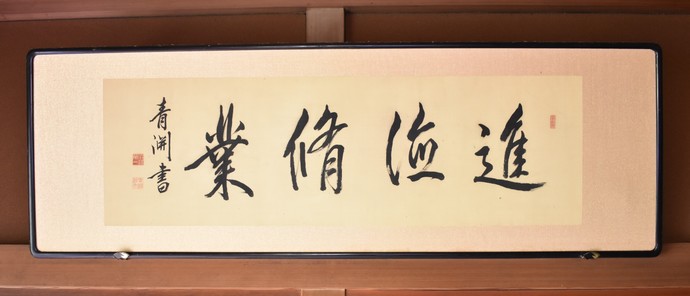 進德脩業
青淵書